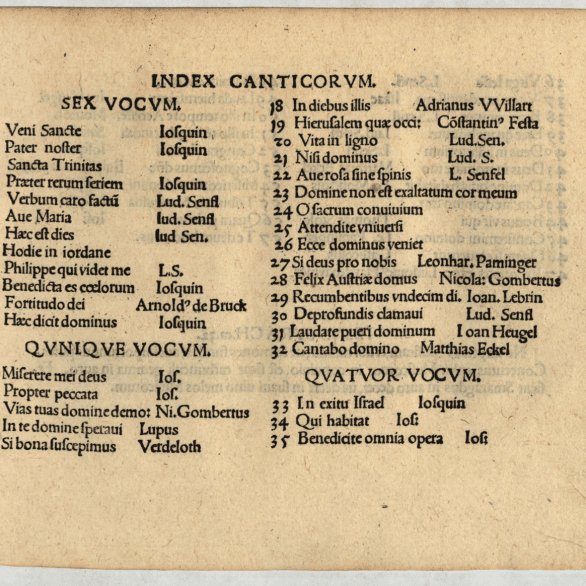 INDEX CANTICORVM.
SEX VOCVM.
Veni Sancte Ioſquin
Pater noſter Ioſquin
Sancta Trinitas
Præter rerum ſeriem Ioſquin
Verbum caro factū Lud. Senfl
Aue Maria lud. Senfl
Hæc eſt dies lud Sen.
Hodie in iordane
Philippe qui videt me L.S.
Benedicta es cœlorum Ioſquin
Fortitudo dei Arnold⁹ de Bruck
Hæc dicit dominus Ioſquin
QVNIQVE VOCVM.
Miſerere mei deus Ioſ.
Propter peccata Ioſ.
Vias tuas domine demo: Ni.Gombertus
In te domine ſperaui Lupus
Si bona ſuſcepimus Verdeloth
18 In diebus illis Adrianus VVillart
19 Hieruſalem quæ occi: Cōſtantin⁹ Feſta
20 Vita in ligno Lud.Sen.
21 Niſi dominus Lud. S.
22 Aue roſa ſine ſpinis L. Senfel
23 Domine non eſt exaltatum cor meum
24 O ſacrum conuiuium
25 Attendite vniuerſi
26 Ecce dominus veniet
27 Si deus pro nobis Leonhar. Paminger
28 Felix Auſtriæ domus Nicola: Gombertus
29 Recumbentibus vndecim di. Ioan. Lebrin
30 Deprofundis clamaui Lud. Senfl
31 Laudate pueri dominum Ioan Heugel
32 Cantabo domino Matthias Eckel
QVATVOR VOCVM.
33 In exitu Iſrael Ioſquin
34 Qui habitat Ioſ:
35 Benedicite omnia opera Ioſ: